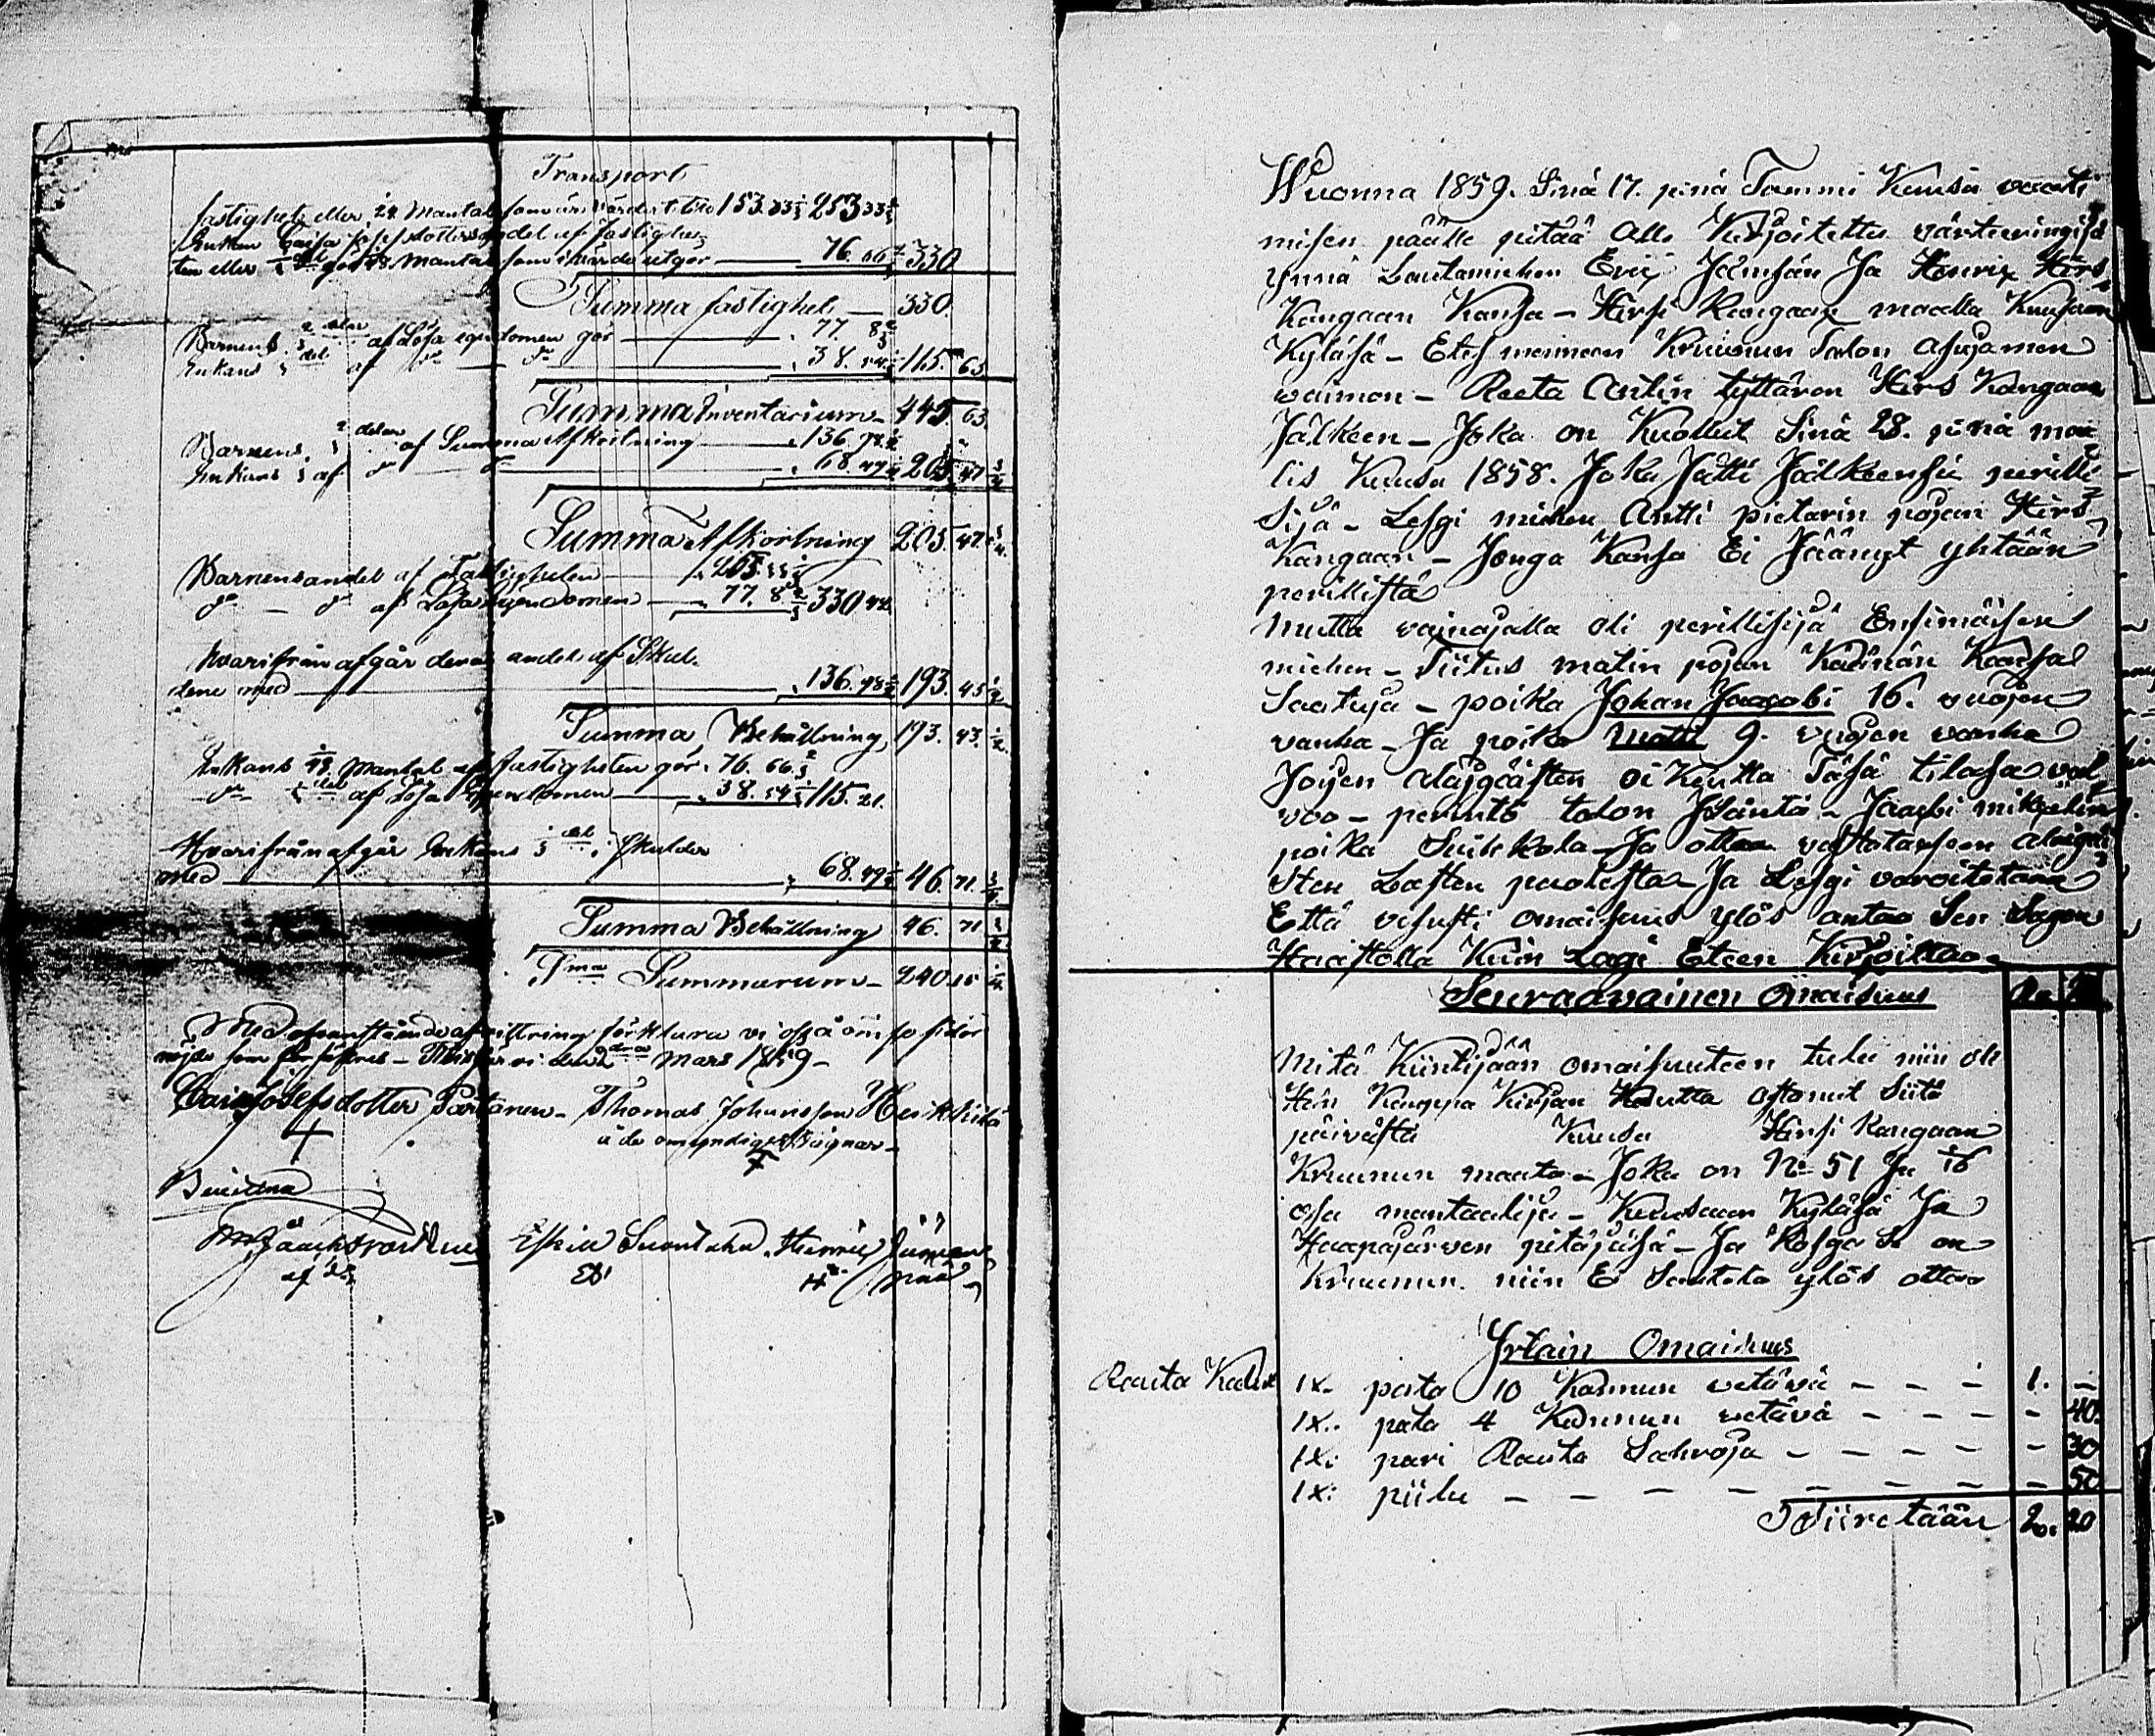 Transport
fastighet eller 1/24 Mantal som är värdert till 153. 33 1/3 253 33 1/3
Enkan Caisa Josefsdotters andel af fastighe-
ten eller 1/48 Mantal som i värde utgör 76. 66 2/3 330
Summa fastighet 330.
Barnens 2/3 delar af Lösa egendomen gör 77. 8 2/3
Enkans 1/3 del af do do 38. 54 1/3 115. 63
Summa Inventarium 445. 63.
Barnens 2/3 delar af Summa Afkortning 136. 98 1/2
Enkans 1/3 af do 68. 49 1/4 205. 47 3/4
Summa Afkortning 205. 47. 3/4
Barnens andel af Fastigheten
do do af Lösa Egendomen 77. 8 2/3 330. 42
Hvarifrån afgår deras andel af Skul-
dene med 136. 98 1/2 193. 43 1/2
Summa Behållning 193. 43. 1/2
Enkans 1/48 Mantal af fastigheten gör 76. 66 2/3
do 1/3 del af Lösa Egendomen 38. 54 1/3 115. 21.
Hvarifrån afgår Enkans 1/3 del i skulder
med 68. 49 1/4 46. 71 3/4
Summa Behållning 46. 71 3/4
Sma Summarum 240. 15 1/4
Med ofvanstående afvittring förklara vi oss å ömse sidor
nöjde som försäkras den 2dra Mars 1859
Caisa Josefsdotter Partanen Thomas Johansson
å de omyndigas vägnar
Bevittna
Eskil Suontaka Henric
Wuonna 1859. Sinä 17. p:nä Tammi Kuusa vaati
misen päälle pitää Alle Kirjoitettu värteeringisä
ynnä Lautamiehen Eric Jämsän Ja Henric Hirs
Kangaan Kansa - Hirsi Kangaan maalla Kuusaan
Kyläsä - Etes menneen Kruunun Talon asujamen
vaimon - Reeta Antin tyttären Hirs Kangaan
Jälkeen - Joka on Kuollut Sinä 28. p:nä maa
lis Kuusa 1858. Joka Jätti Jälkeensä perilli
Sijä - Lesgi miehen Antti pietarin pojan Hirs
Kangaan - Jonga Kansa Ei Jäänyt yhtään
perillistä
Mutta vainajalla oli perillisijä Ensimäisen
miehen - Tiitus matin pojan Kansa
Saatuja - poika Johan Jaacobi 16. vuojen
vanha - Ja poika Matti 9. vuojen vanha
Joijen alajgäisten oikeutta Täsä tilasa val
voo - perintö talon Isäntä - Jaacobi mikaelin
poika Suikkola - Ja ottaa vastataxeen alaigäi
sten Lasten puolesta - Ja Lesgi varoitetaan
Että visusti omaisuus ylös antaa Sen Sagon
Haastolla Kuin Lagi Eteen Kirjoittaa
Seuraavainen Omaisuus
Mitä Kiintijään omaisuuteen tulee niin oli
Hän Kauppa Kirjan Kautta ostanut Siitä
päivästä Kuusa Hirsi Kangaan
Kruunun maata - Joka on No 51 Ja 1/16
osa mantaalija - Kuusaan Kyläsä Ja
Haapajärven pitäjäsä - Ja Kosga Se on
Kruunun niin Ei Saateta ylös ottaa
Irtain Omaisuus
Rauta Kalut 1x. pata 10 Kannun vetävä - - - 1. -
1x. pata 4 Kannun vetävä - - - - 40.
1x. pari Rauta Sahroja - - - - - 30
1x. piilu - - - - - - - - 50
Siiretään 2. 20